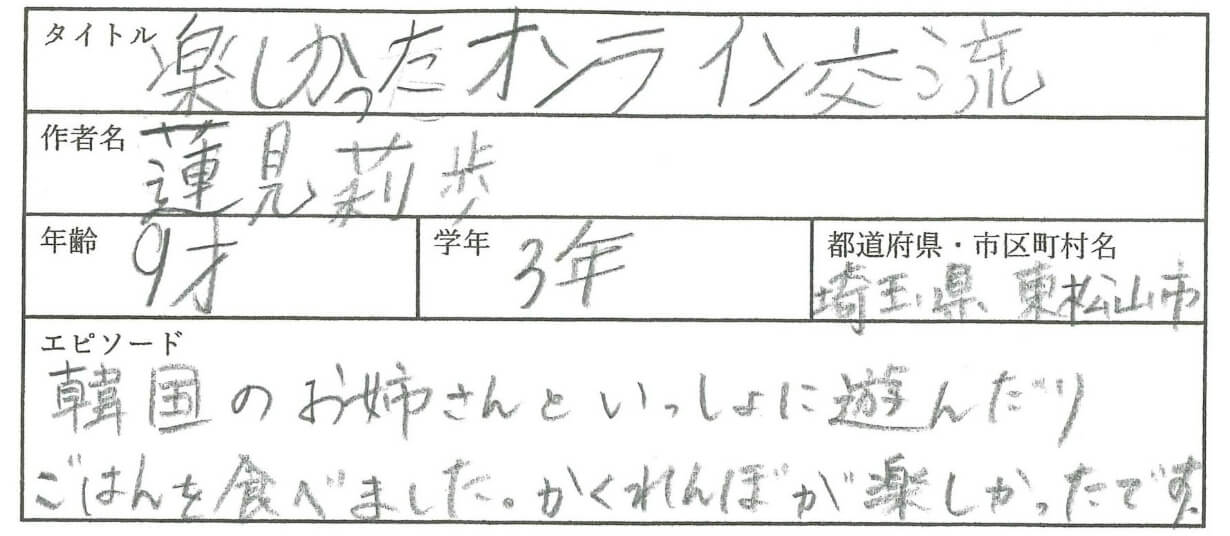 タイトル 楽しかったオンライン交流
作者名 蓮見莉歩
年齢 9才 学年 3年 都道府県・市区町村名 埼玉県 東松山市
エピソード
韓国のお姉さんといっしょに遊んだり
ごはんを食べました。かくれんぼが楽しかったです。